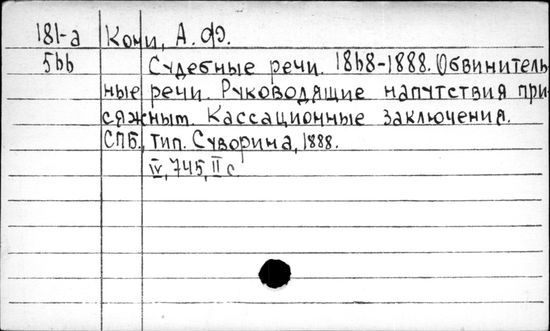 181-а Кони, А. Ф.
566 Судебные речи. 1868-1888. Обвинитель
ные речи. Руководящие напутствия при-
сяжным. Кассационные заключения.
СПБ., тип. Суворина, 1888.
IV, 745, II с.